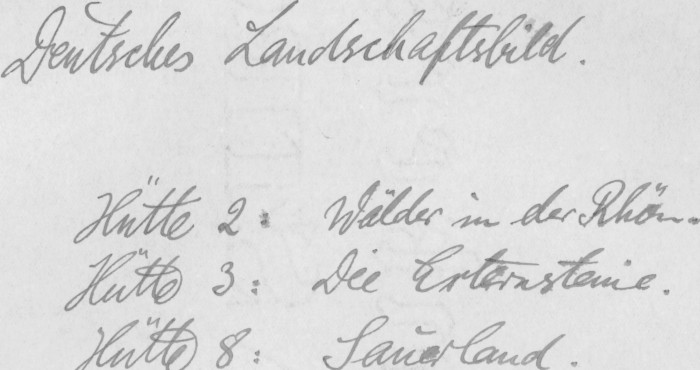 Deutsches Landschaftsbild.
Hütte 2: Wälder in der Rhön.
Hütte 3: Die Externsteine.
Hütte 8: Sauerland.